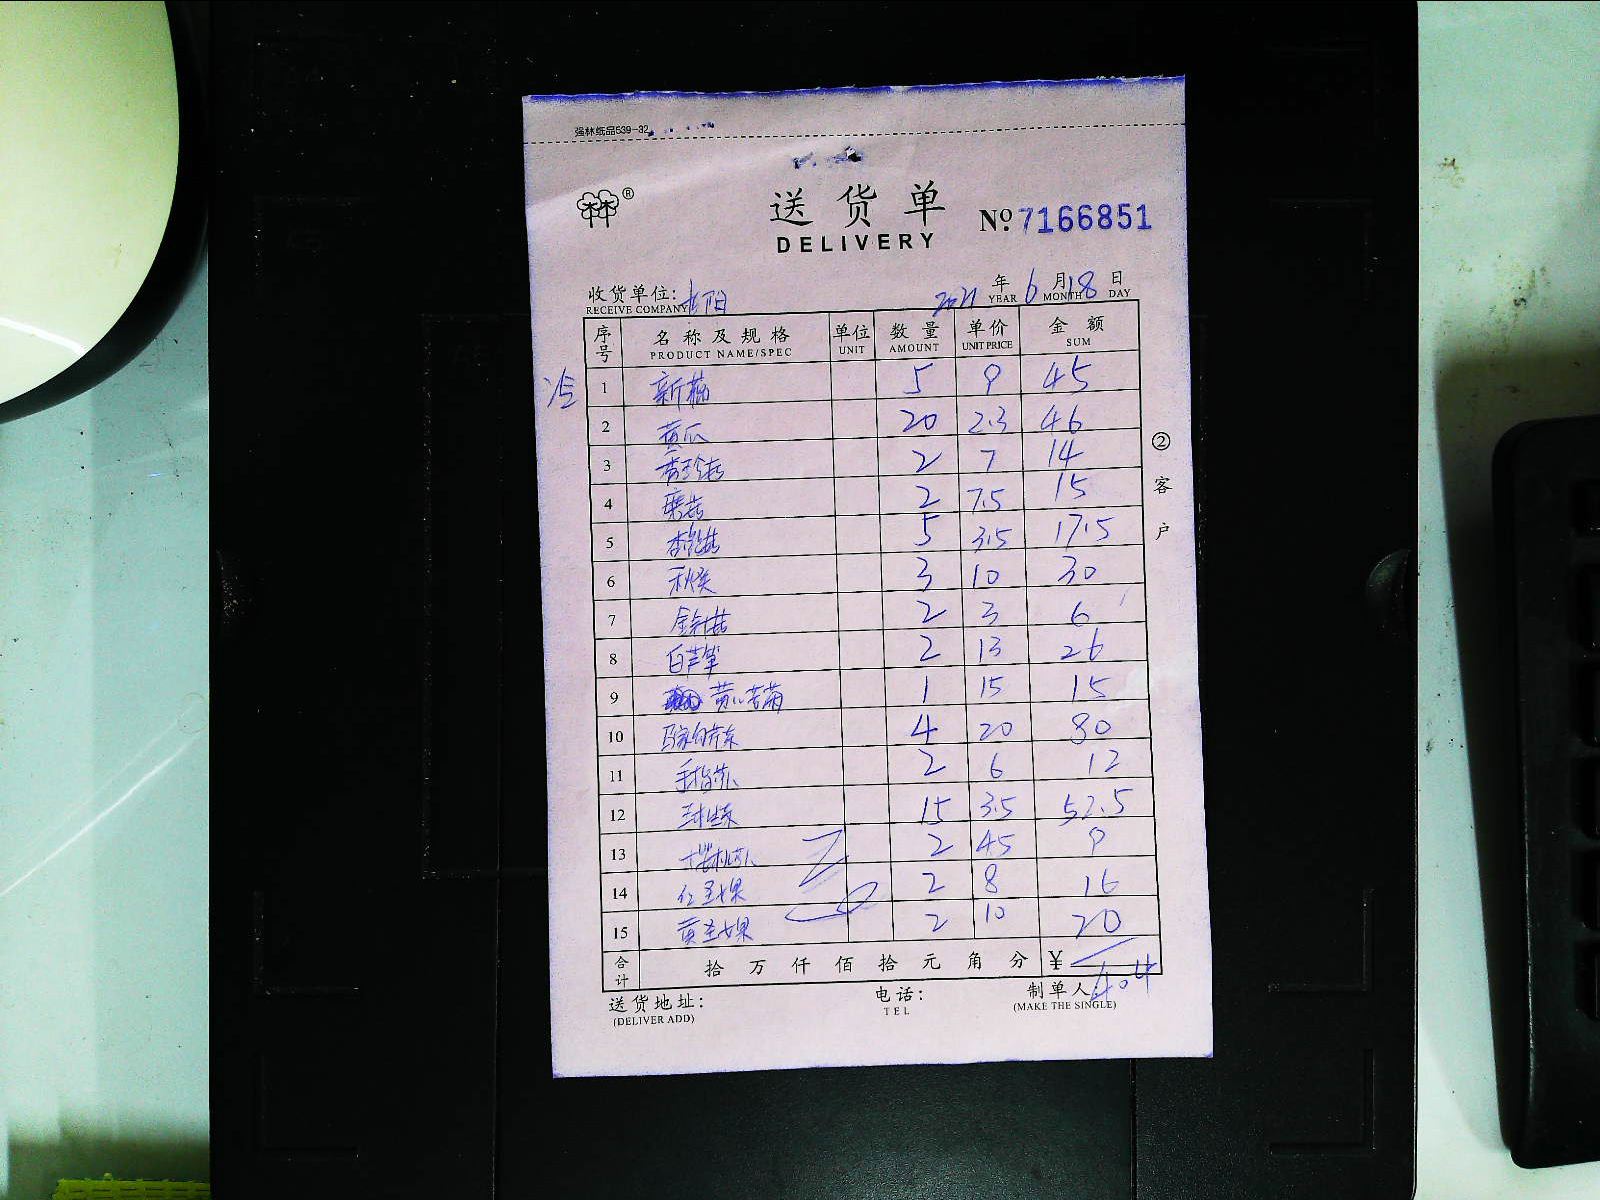 强林纸品539-32
送货单
DELIVERY
№ 7166851
收货单位:
RECEIVE COMPANY
2021 年 6 月 18 日
YEAR MONTH DAY
序号 名称及规格 单位 数量 单价 金额
PRODUCT NAME/SPEC UNIT AMOUNT UNIT PRICE SUM
冷 1 5 9 45
2 黄瓜 20 2.3 46
3 2 7 14
4 蘑菇 2 7.5 15
5 杏鲍菇 5 3.5 17.5
6 秋葵 3 10 30
7 金针菇 2 3 6
8 白芦笋 2 13 26
9 黄心苦菊 1 15 15
10 4 20 80
11 2 6 12
12 球生菜 15 3.5 52.5
13 2 45 9
14 红圣女果 2 8 16
15 黄圣女果 2 10 20
合计 拾万仟佰拾元角分 ¥ 404
②客户
送货地址: 电话: 制单人
(DELIVER ADD) TEL (MAKE THE SINGLE)